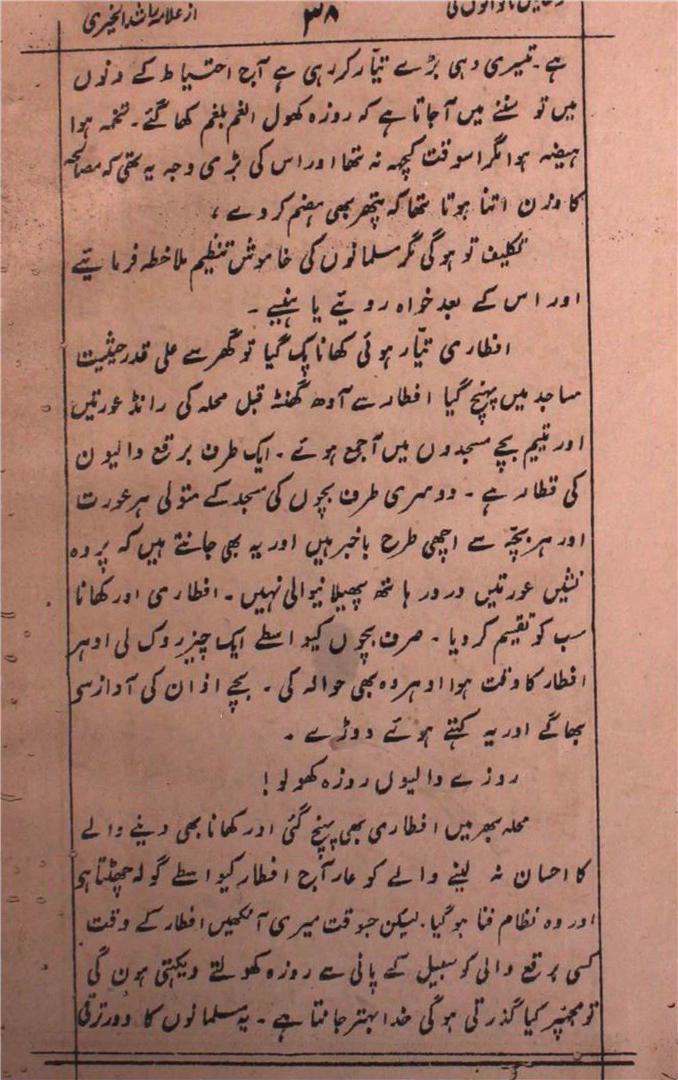 از علامہ راشد الخیری ۳۸
ہے۔ تیسری دہی بڑے تیّار کر رہی ہے آج احتیاط کے دنوں
میں تو سننے میں آجاتا ہے کہ روزہ کھول الغم بلغم کھا گئے۔ تخمہ ہوا
ہیضہ ہوا مگر اسوقت کچھ نہ تھا اور اس کی بڑی وجہ یہ تھی کہ مصالحہ
کا وزن اتنا ہوتا تھا کہ پتھر بھی ہضم کر دے،
تکلیف تو ہوگی مگر مسلمانوں کی خاموش تنظیم ملاخطہ فرمایئے
اور اس کے بعد خواہ رویئے یا ہنسیے۔
افطاری تیّار ہوئی کھانا پک گیا تو گھر سے علی قدر حیثیت
مساجد میں پہنچ گیا افطار سے آدھ گھنٹہ قبل محلہ کی رانڈ عورتیں
اور یتیم بچے مسجدوں میں آ جمع ہوئے۔ ایک طرف برقع والیون
کی قطار ہے۔ دوسری طرف بچوں کی مسجد کے متولی ہر عورت
اور ہر بچّہ سے اچھی طرح باخبر ہیں اور یہ بھی جانتے ہیں کہ پردہ
نشیں عورتیں در در ہاتھ پھیلانیوالی نہیں۔ افطاری اور کھانا
سب کو تقسیم کر دیا۔ صرف بچوں کیواسطے ایک چیز روک لی ادہر
افطار کا وقت ہوا ادہر وہ بھی حوالہ کی۔ بچے اذان کی آواز سے
بھاگے اور یہ کہتے ہوئے دوڑے۔
روزے والیوں روزہ کھولو!
محلہ بھر میں افطاری بھی پہنچ گئی اور کھانا بھی دینے والے
کا احسان نہ لینے والے کو عار آج افطار کیواسطے گولہ چھٹتا ہے
اور وہ نظام فنا ہو گیا۔ لیکن جسوقت میری آنکھیں افطار کے وقت
کسی برقع والی کو سبیل کے پانی سے روزہ کھولتے دیکھتی ہون گی
تو مجھپر کیا گذرتی ہو گی خدا بہتر جانتا ہے۔ یہ مسلمانوں کا دور ترقی